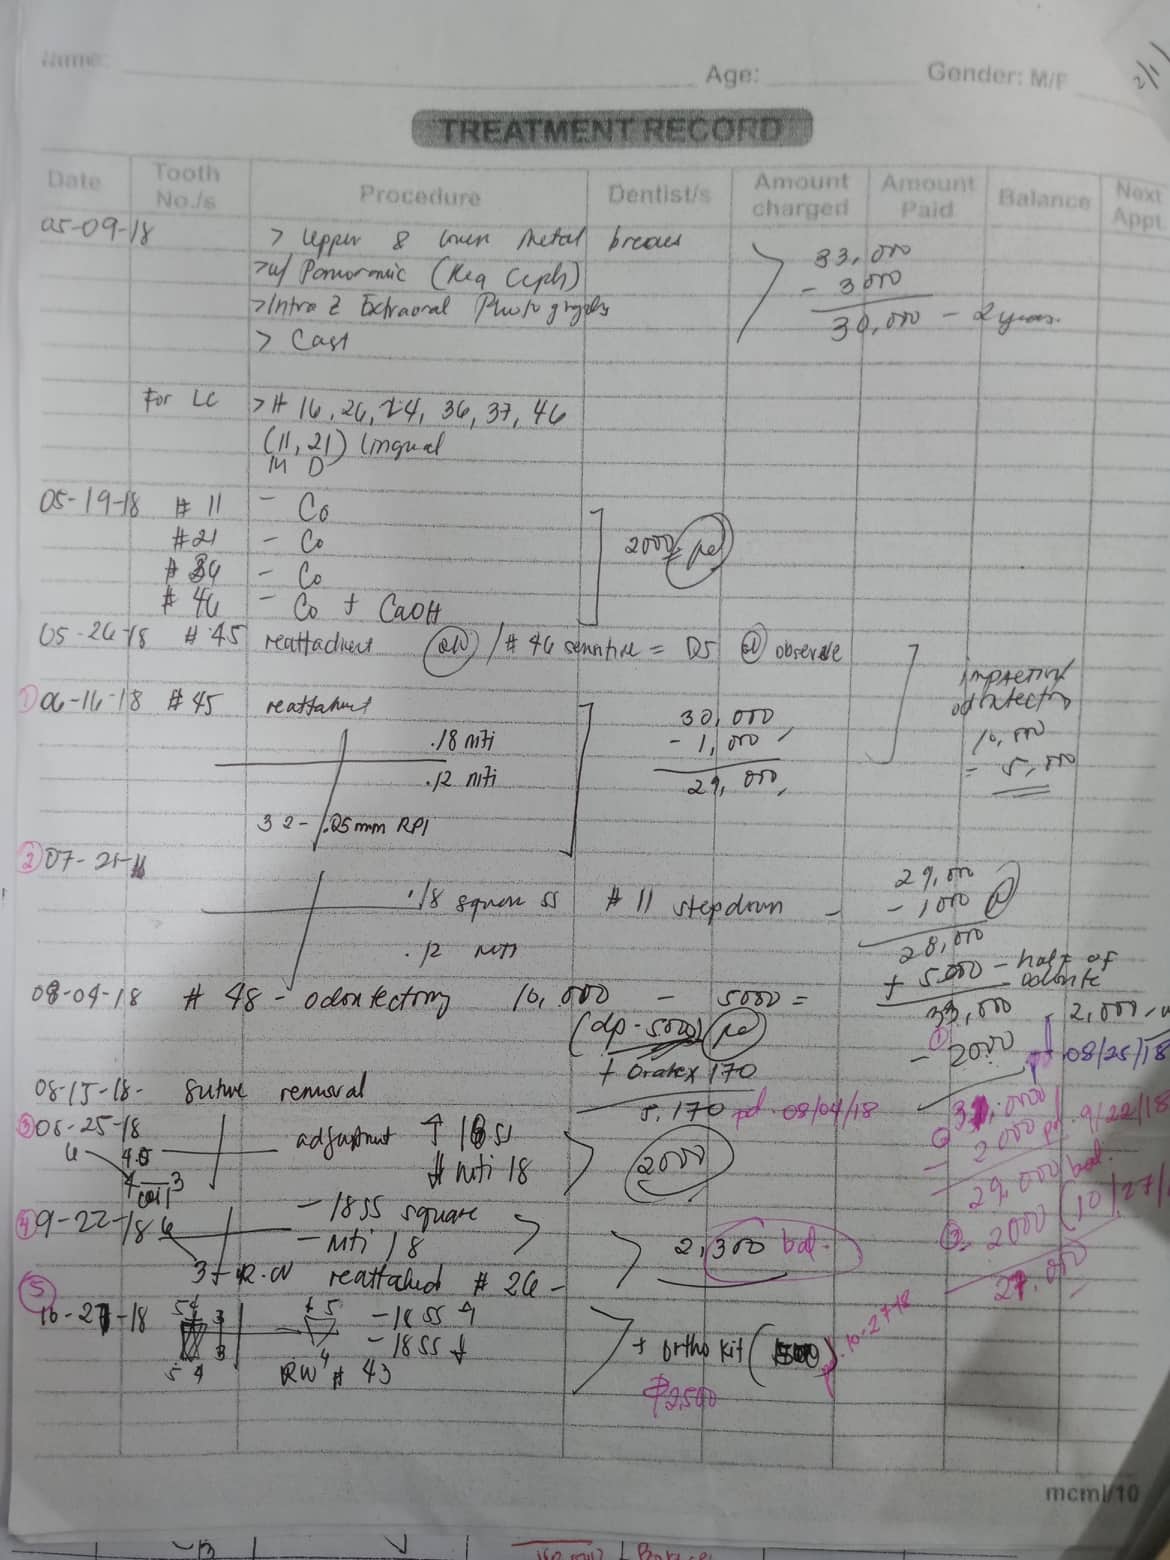 Name: Age: Gender: M/F
TREATMENT RECORD
Date Tooth No./s Procedure Dentist/s Amount charged Amount Paid Balance Next Appt
05-09-18 > Upper & lower Metal braces 33,000
>w/ Panoramic (Req Ceph) - 3000
>Intra & Extraoral Photographs 30,000 - 2 years.
> Cast
For LC ># 16, 26, 24, 36, 37, 46
(11, 21) lingual
M D
05-19-18 # 11 - Co
#21 - Co 2000 pd
# 34 - Co
# 46 - Co + CaOH
05-26-18 #45 reattachment / # 46 sensitive = DS observe
impaction
odontectomy
10,000
= 5,000
① 06-16-18 #45 reattachment 30,000
.18 niti - 1,000
.12 niti 29,000
32- .025mm RPI
② 07-21-18 29,000
.18 square SS # 11 stepdown - - 1000
.12 niti 28,000
+ 5000 - half of odonte
08-04-18 # 48 - odontectomy 10,000 - 5000 = 33,000 - 2,000
(dp-5000) pd ① - 2000 pd 08/25/18
+ Oratex 170
08-15-18- suture removal 5,170 pd. 08/04/18 31,000
③ 08-25-18 adjustment ↑ 18 SS 2000 2000 pd. 9/22/18
6 45 niti 18 29,000 bal.
4 coil 3
④ 9-22-18 6 - 18 SS square 2000 (10/27/
- niti 18 2,300 bal. 27,000
3 reattached # 26 -
⑤ 10-27-18 54 3 45 - 18 SS
- 18 SS + ortho kit (500) pd. 10-27-18
54 3 RW 4 # 43 ₱2,500
mcml/10